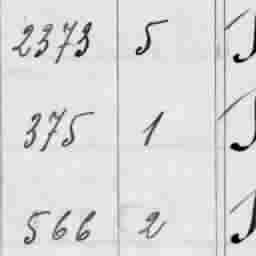 2373 5
375 1
566 2